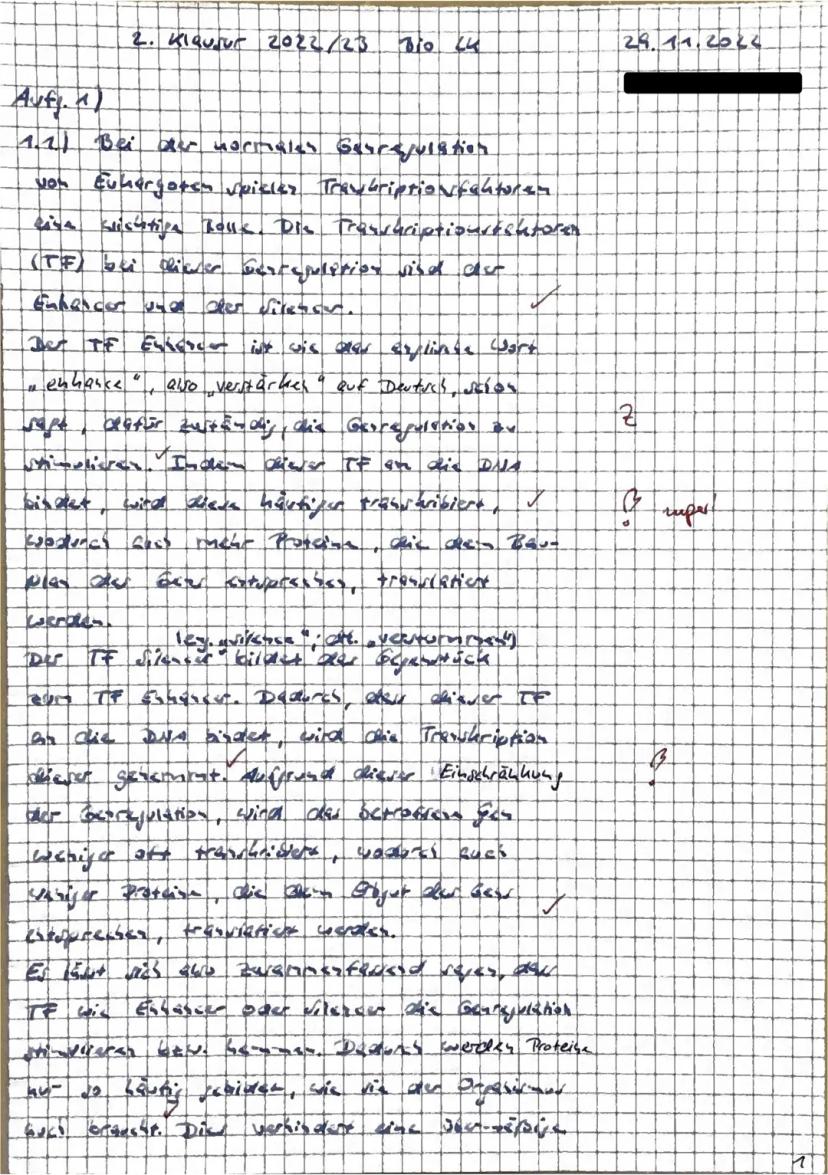 2. Klausur 2022/23 Bio LK 29.11.2022
Aufg. 1)
1.1) Bei der normalen Genregulation
von Eukaryoten spielen Transkriptionsfaktoren
eine wichtige Rolle. Die Transkriptionsfaktoren
(TF) bei dieser Genregulation sind der
Enhancer und der Silencer.
Der TF Enhancer ist wie das englische Wort
„enhance", also „verstärken" auf Deutsch, schon
sagt, dafür zuständig, die Genregulation zu
Z
stimulieren. Indem dieser TF an die DNA
bindet, wird diese häufiger transkribiert,
super!
wodurch auch mehr Proteine, die dem Bau-
plan des Gens entsprechen, translatiert
werden.
(eng. „silence"; dt. „verstummen")
Der TF Silencer bildet das Gegenstück
zum TF Enhancer. Dadurch, dass dieser TF
an die DNA bindet, wird die Transkription
dieser gehemmt. Aufgrund dieser Einschränkung
der Genregulation, wird das betroffene Gen
weniger oft transkribiert, wodurch auch
weniger Proteine, die dem Erbgut des Gens
entsprechen, translatiert werden.
Es lässt sich also zusammenfassend sagen, dass
TF wie Enhancer oder Silencer die Genregulation
stimulieren bzw. hemmen. Dadurch werden Proteine
nur so häufig gebildet, wie sie der Organismus
auch braucht. Dies verhindert eine übermäßige
1